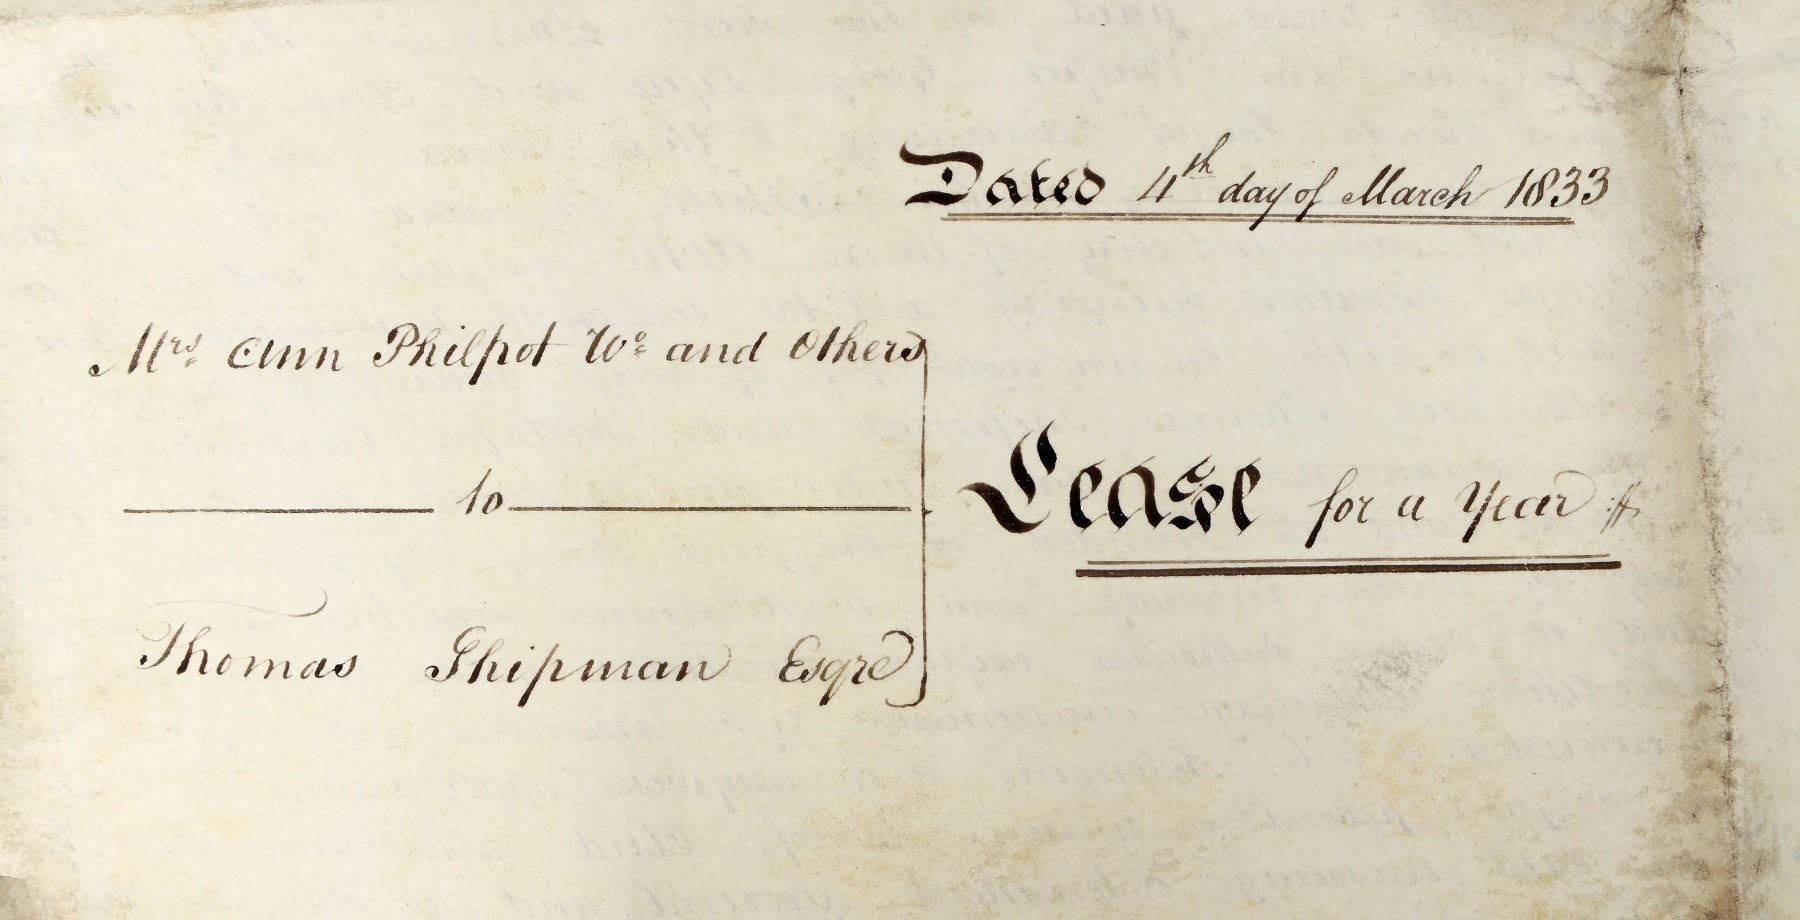 Dated 4th day of March 1833
Mrs. Ann Philpot Wo. and Others
to
Lease for a Year
Thomas Shipman Esqre